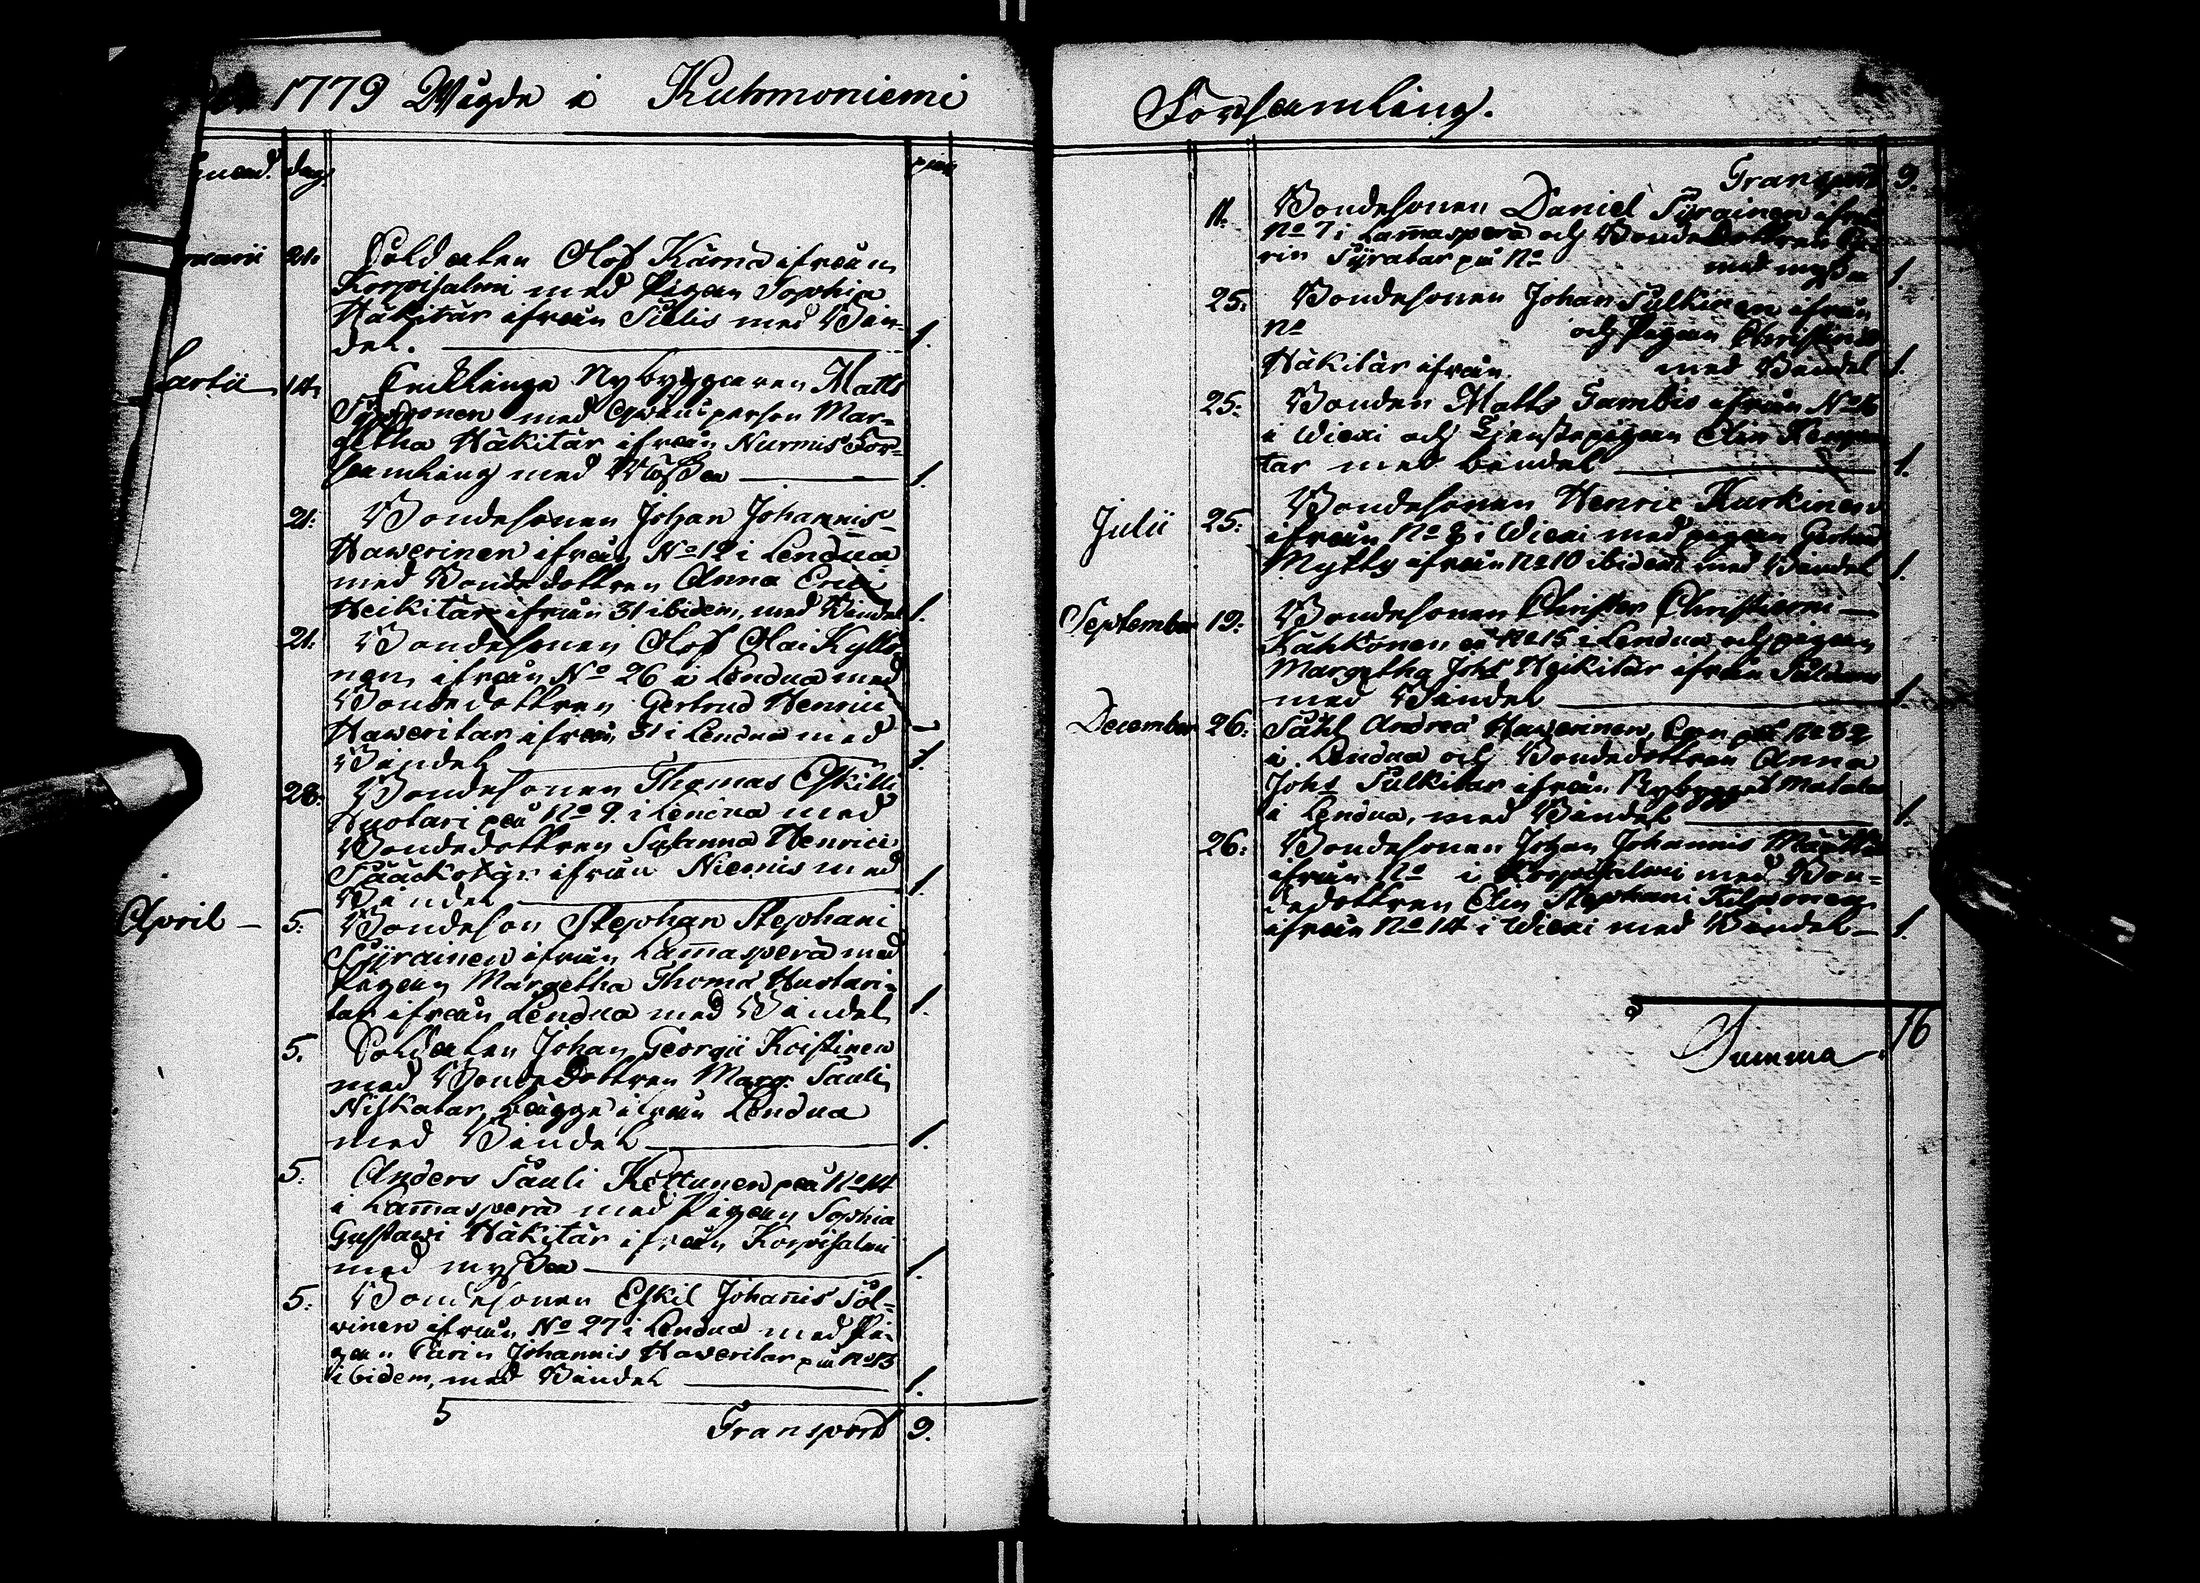 1779 Wigde i Kuhmoniemi
månad. dag. par
ruarii 21. Soldaten Olof Kämä ifrån
Korpisalmi med Pigan Sophia
Häkitär ifrån Sulis med Bin-
del. 1.
Martii 14. Encklinge Nybyggaren Matts
med Qwinsperson Mar-
getha Häkitär ifrån Nurmis För-
samling med Mössa 1.
21. Bondesonen Johan Johannis
Hawerinen ifrån No 12 i Lendua
med Bondedottren Anna Erici
Heikitär ifrån 31 ibidem, med Bindel 1.
21. Bondesonen Olof Olai Kyllö-
nen ifrån No 26 i Lendua med
Bondedottren Gertrud Henrici
Haweritar ifrån 31 i Lendua med
Bindel 1.
28. Bondesonen Thomas Eskilli
Huotari på No 9. i Lendua med
Bondedottren Susanna Henrici
Pääckotär ifrån Niemis med
Bindel 1.
April 5. Bondeson Stephan Stephani
Syrainen ifrån Lam̄asperä med
Pigan Margetha Thomæ Huotari-
tar ifrån Lendua med Bindel 1.
5. Soldaten Johan Georgii Koistinen
med Bondedottren Marg. Pauli
Niskatar, bägge ifrån Lendua
med Bindel 1.
5. Anders Pauli Kettunen på No 14
i Lam̄asperä med Pigan Sophia
Gustawi Häkitär ifrån Korpisalmi
med myssa 1.
5. Bondesonen Eskil Johan̄is Pol-
vinen ifrån No 27 i Lendua med Pi-
gan Carin Johannis Haveritar på No 13
ibidem, med Bindel 1.
5 Transport 9.
Församling.
Transport 9.
11. Bondesonen Daniel Syrainen ifrån
No 7 i Lam̄asperä och Bondedottren Ca-
rin Syratar på No med myssa 1.
25. Bondesonen Johan Pulkinen ifrån
No och Pigan Christina
Häkitär ifrån med Bindel 1.
25. Bonden Matts Tambio ifrån No 16
i Wiexi och Tjenstepigan Elin
tar med bindel 1.
Julii 25. Bondesonen Henric Kurkinen
ifrån No 8 i Wiexi med pigan Gertrud
Mytty ifrån No 10 ibidem med Bindel 1.
September 19. Bondesonen Christer Christierni
Kähkönen på No 15 i Lendua och pigan
Margetha Johs Heikitär ifrån
med Bindel 1.
December 26. Påhl Andreæ Hawerinen, No 32
i Lendua och Bondedottren Anna
Johs Pulkitar ifrån Nybygget Matala
i Lendua, med Bindel 1.
26. Bondesonen Johan Johannis Määttä
ifrån No i Korpisalmi med Bon-
dedottren Elin Stephani Kilponen
ifrån No 14 i Wiexi med Bindel 1.
Summa 16